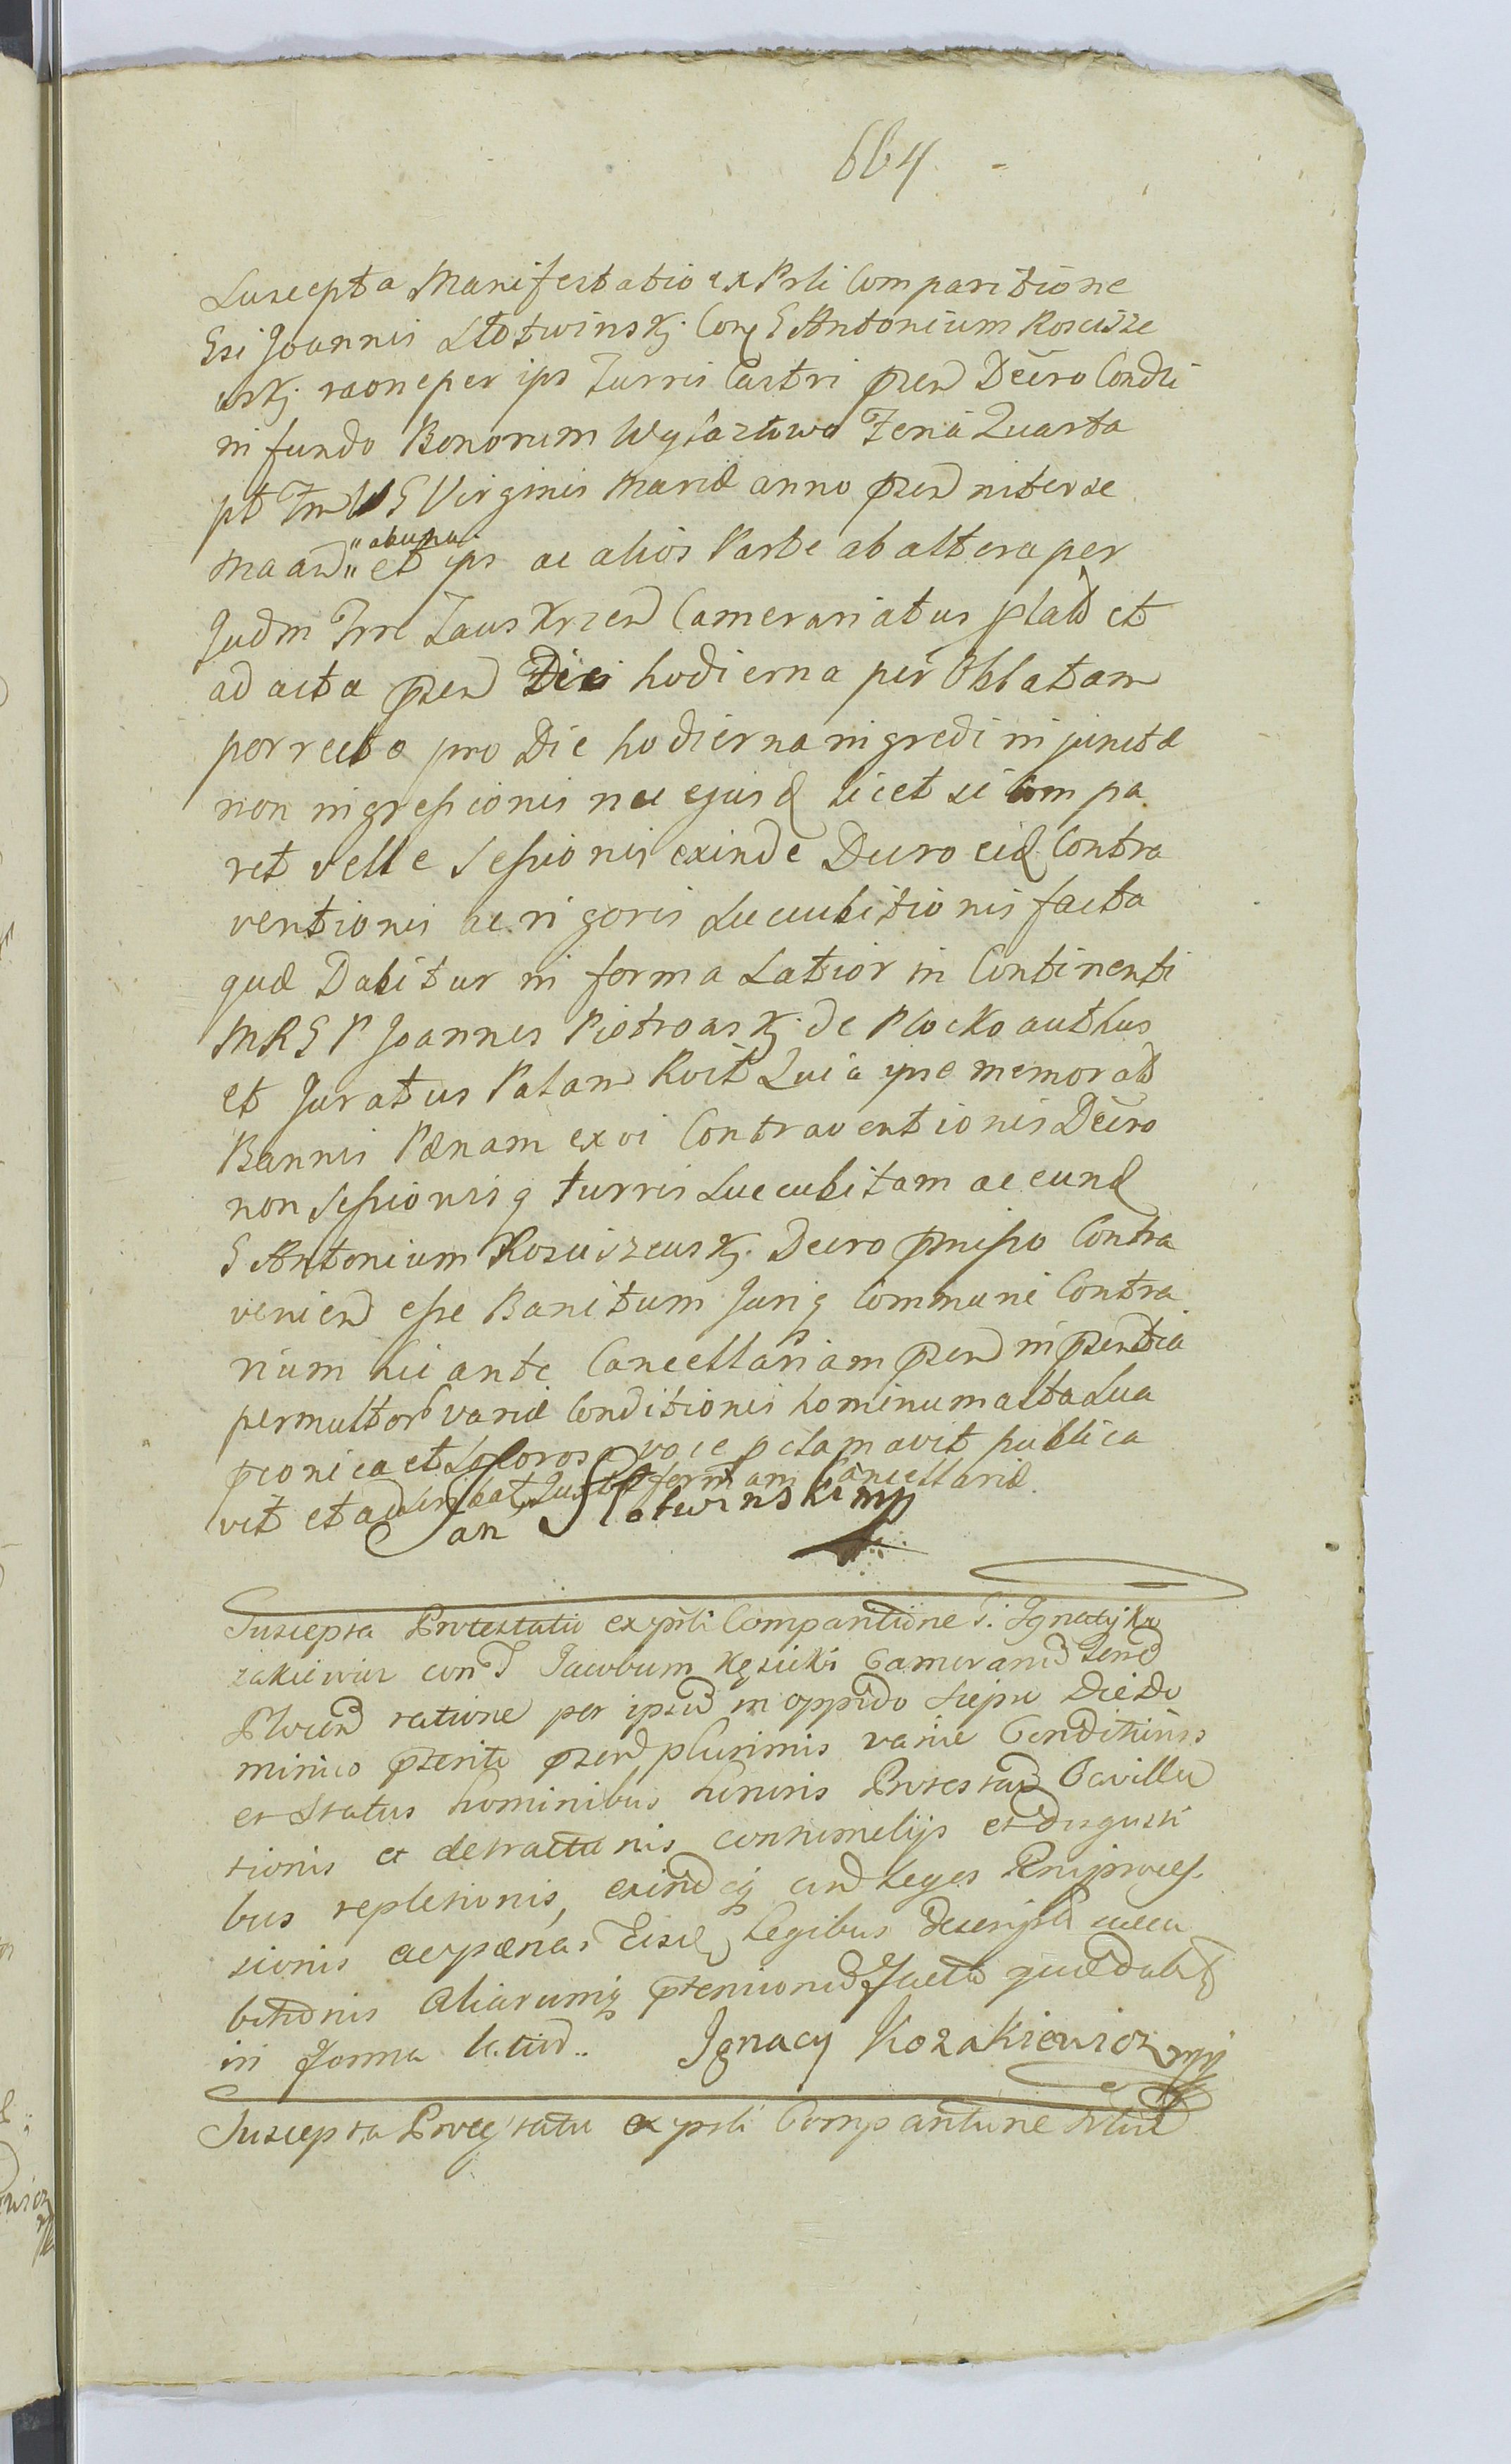 664
Suscepta Manifestatio ex Prli Comparitione
Gsi Joannis Słotwinskj Con G Antonium Koscisze
wskj raone per ips Turris Castri pren Decro Condti
in fundo Bonorum Wylazłowo Feria Quarta
pt Fm Virginis Mariæ anno pren inter se
"abuna"
Maan" et ips ac alios Parte ab altera per
Judm Trre Zauskrzen Camerariatus plat et
ad acta pren Die hodierna per Oblatam
porrecto pro Die hodierna ingredi injunctæ
non ingressionis nec ejusd licet se compa
ret velle sessionis exinde Decro eid Contra
ventionis ac rigoris Succubitionis facta
quæ Dabitur in forma Latior in Continenti
MRGP Joannes Piotrowskj de Plocko authus
et Juratus Palam Roit Quia ipse memorat
Bannis Pænam ex vi Contraventionis Decro
non Sessionisq turris Succubitam ac eund
G Antonium Kosciszewskj Decro pmisso Contra
venien esse Banitum Juriq Communi Contra
rium hic ante Cancellariam pren in prentia
permultor variæ Conditionis hominum alta sua
pconica et sonoros voce pclamavit publica
vit et Juxta formam Cancellariæ
Jan Słotwinski mp
Suscepta Protestatio ex prli Comparitione G. Ignatij Ko
zakiewicz con G Jacobum Kęsicki Camerarid Terrd
Plocen ratione per ipsud in oppido Siepc Die Do
minico pterito pren plurimis variæ Conditionis
et Status hominibus honoris Protestan Cavilla
tionis et detractionis contumelijs et disgusti
bus repletionis, exindeq ad Leges
sionis ac pænas Eisd Legibus descriptar succu
bitionis Aliarumq ptensionud facta quæ dabit
in forma latiod.. Ignacy Kozakiewicz mp
Suscepta Protestatio ex prli Comparitione